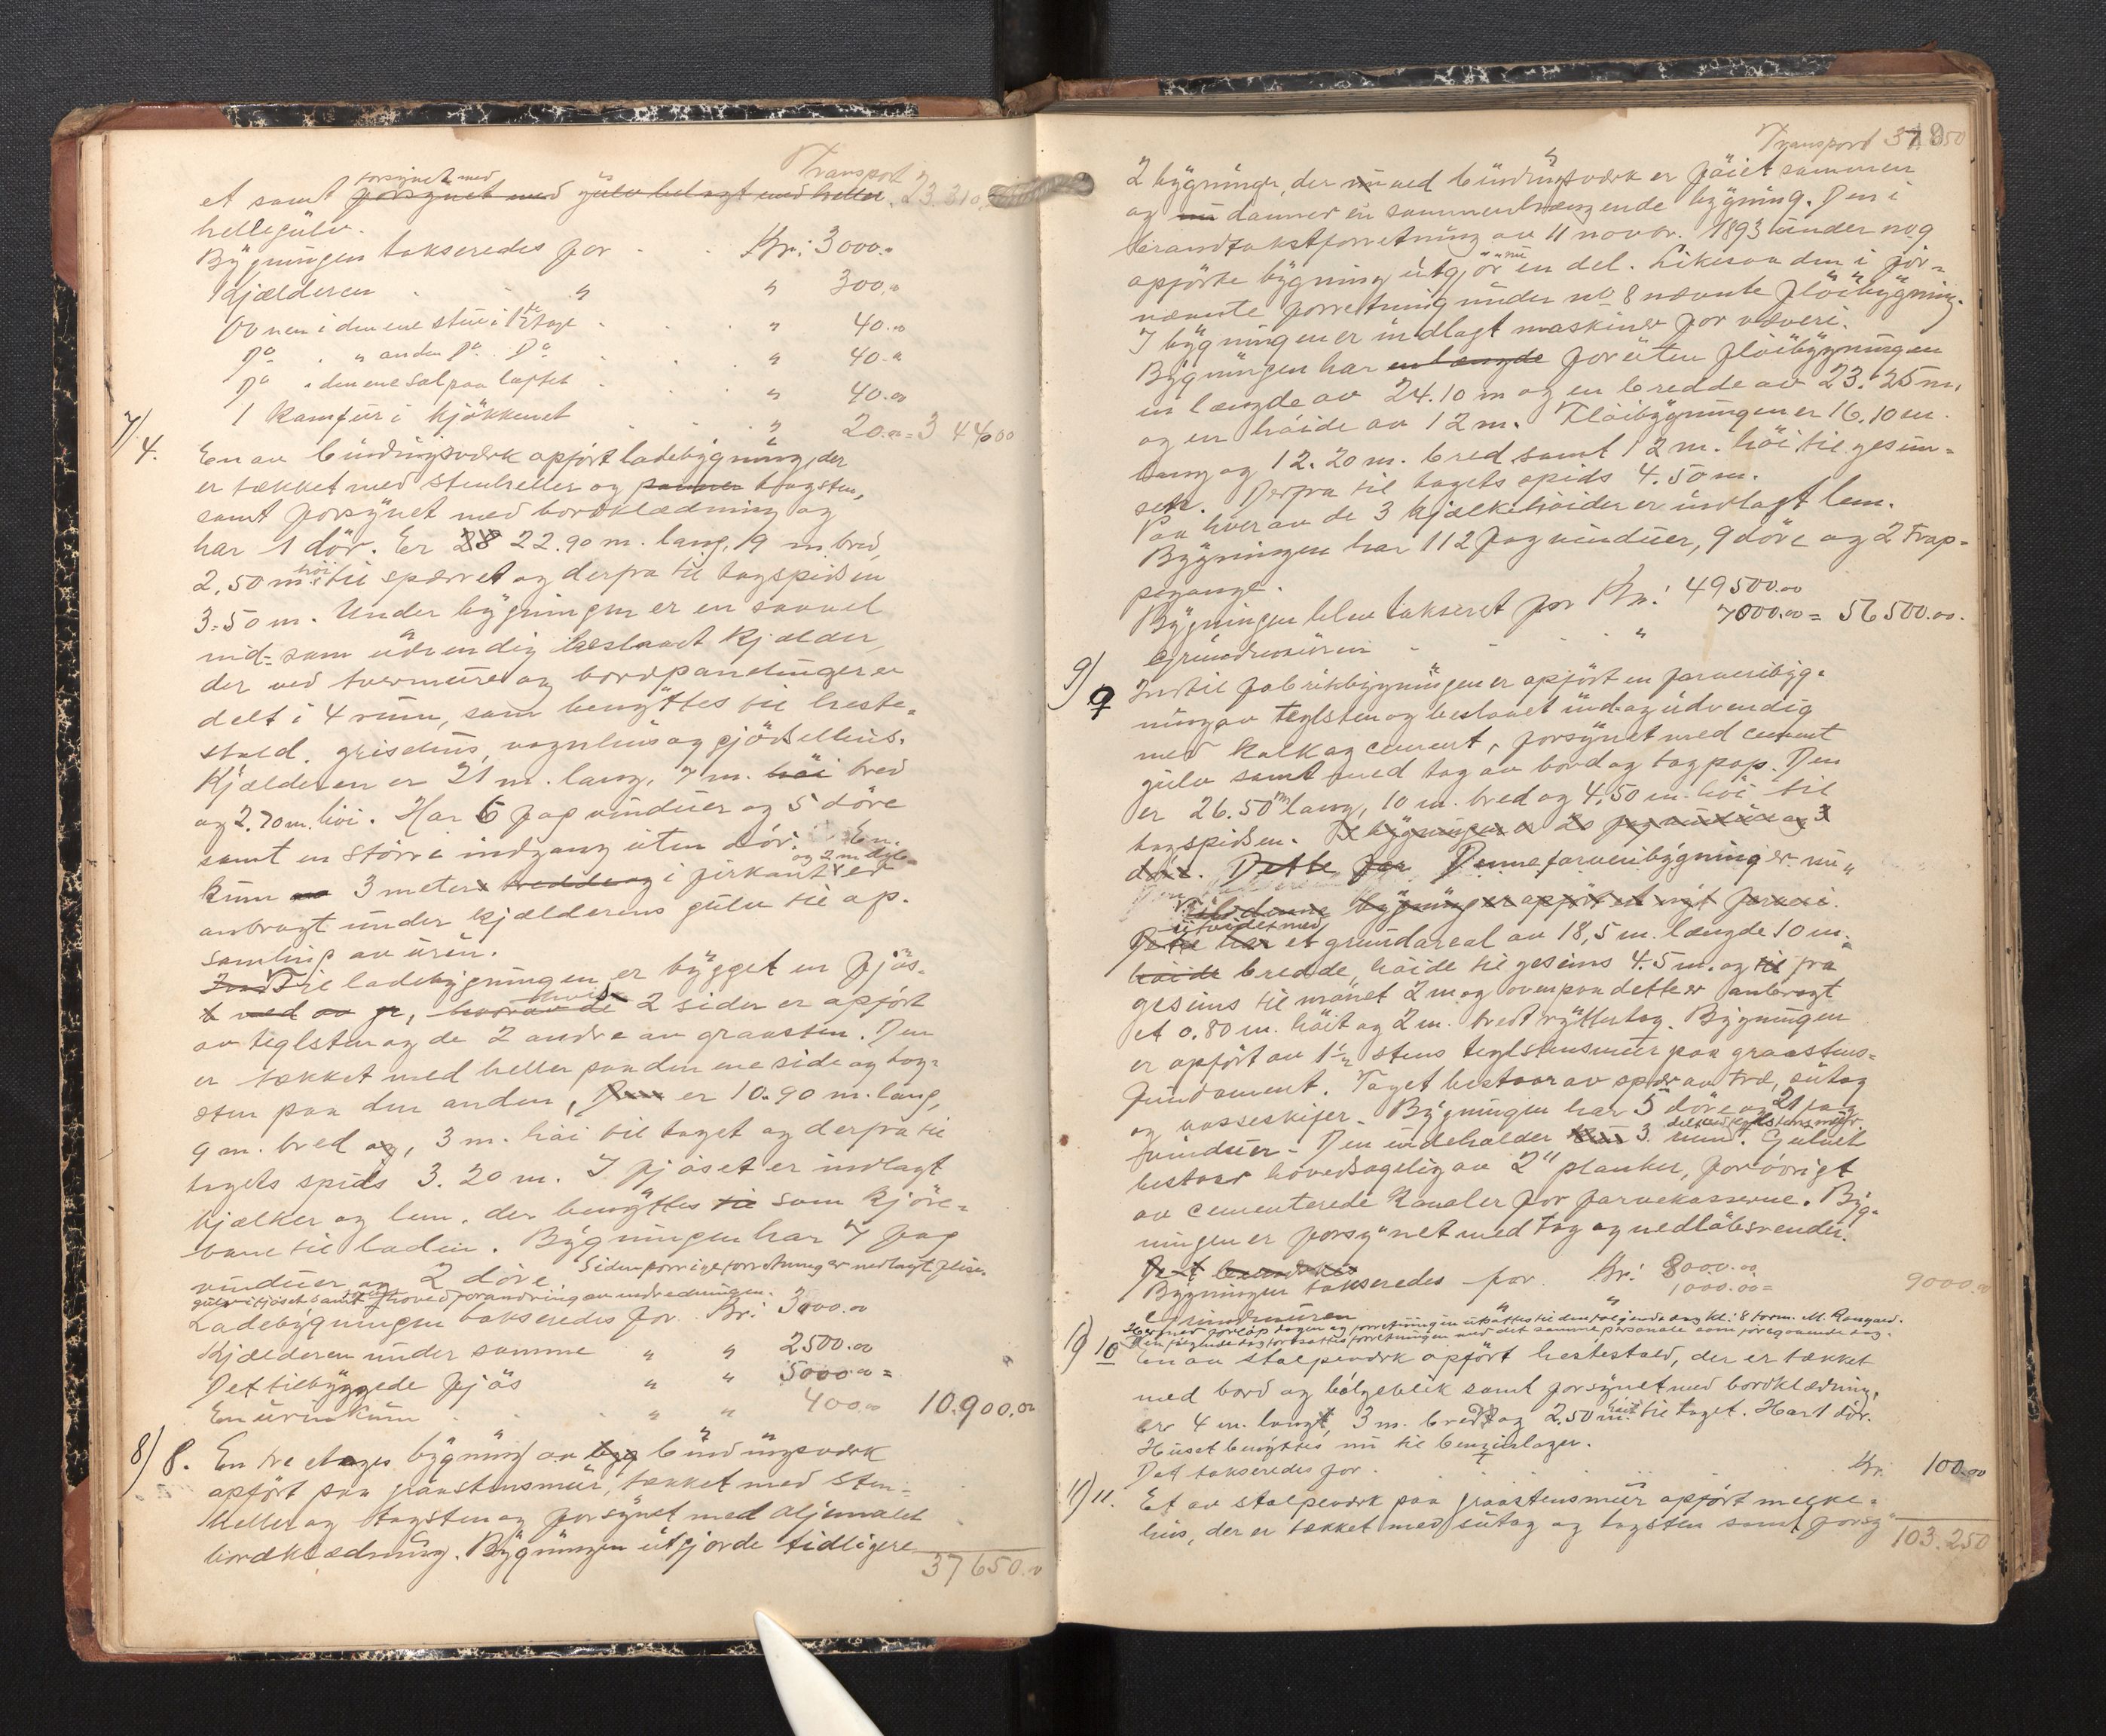 Transport
et samt forsynet med ~~forsynet med gulv belagt med heller~~ 23 310
hellegulv.
Bygningen takseredes for Kr: 3000.-
Kjælderen " " 300.-
Ovnen i den ene stue i 1ste etage " 40.00
Do " anden Do Do " 40.-
Do i den ene sal paa loftet " 40.00
1 komfur i kjökkenet " 20.00 = 3 440 00
7) 4. En av bindingsværk opfört ladebygning, der
er tækket med stenheller og ~~panner~~ tagsten,
samt forsynet med bordklædning og
har 1 dör. Er ~~28~~ 22.90 m. lang, 19 m. bred,
2,50 m. höi til spærret og derfra til tagspidsen
3.50 m. Under bygningen er en saavel
ind- som udvendig beslaaet kjælder,
der ved tvermure og bordpanelinger er
delt i 4 rum, som benyttes til heste-
stald, grisehus, vognhus og gjödselhus.
Kjælderen er 21 m. lang, 7 m. ~~höi~~ bred
og 2.70 m. höi. Har 6 fag vinduer og 5 döre
samt en större indgang uten dör. En
kum ~~~~ 3 meter ~~bredde og~~ i firkant og 2 m dyb er
anbragt under kjælderens gulv til op-
samling av urin.
~~Ind~~ Til ladebygningen er bygget en fjös-
~~b med av gr, hvorav de~~ hvis 2 sider er opfört
av teglsten og de 2 andre av graasten. Den
er tækket med heller paa den ene side og tag-
sten paa den anden, ~~Den~~ er 10.90 m. lang,
9 m. bred ~~og~~, 3 m. höi til taget og derfra til
tagets spids 3.20 m. I fjöset er indlagt
bjælker og lem, der benyttes ~~til~~ som kjöre-
bane til laden. Bygningen har 7 fag
vinduer og 2 döre. Siden forrige forretning er nedlagt flise-
gulv i fjöset samt hovedforandring av indredningen.
Ladebygningen takseredes for Kr: 3000.00
Kjælderen under samme " " 2500.00
Det tilbyggede fjös " " 5000.00 =
En urinkum " " 400.00 10.900.00
8) 8. En tre etages bygning av ~~byg~~ bindingsværk
opfört paa graastensmur, tækket med sten-
heller og tagsten og forsynet med oljemalet
bordklædning. Bygningen utgjorde tidligere
37 650.00
Transport 37.650
2 bygninger, der ~~nu~~ ved bindingsværk er föiet sammen
og ~~nu~~ danner en sammenhængende bygning. Den i
brandtakstforretning av 11 novbr. 1893 under no 9
opförte bygning utgjör nu en del. Likesaa den i för-
nævnte forretning under no 8 nævnte flöibygning.
I bygningen er indlagt maskiner for væveri.
Bygningen har ~~en længde~~ foruten flöibygningen
en længde av 24.10 m og en bredde av 23.25 m.
og en höide av 12 m. Flöibygningen er 16.10 m.
lang og 12.20 m. bred samt 12 m. höi til gesim-
sen. Derfra til tagets spids 4.50 m.
Paa hver av de 3 bjælkehöider er indlagt lem.
Bygningen har 112 fag vinduer, 9 döre og 2 trap-
pegange.
Bygningen blev takseret for Kr: 49500.00
Grundmuren " 7000.00 = 56 500.00.
9) 9 Ind til fabrikbygningen er opfört en farveribyg-
ning av teglsten og beslaaet ind- og udvendig
med kalk og cement, forsynet med cement
gulv samt med tag av bord og tagpap. Den
er 26.50 m lang, 10 m. bred og 4,50 m. höi til
tagspidsen. ~~I bygningen er 20 fag vinduer og 3~~
~~döre. Dette far~~ Denne farveribygning er nu
~~Til denne bygning er opfört et nyt farveri.~~
~~Dette har~~ utvidet med et grundareal av 18,5 m. længde 10 m.
~~höide~~ bredde, höide til gesims 4.5 m. og ~~til~~ fra
gesims til mönet 2 m og ovenpaa dette er anbragt
et 0.80 m. höit og 2 m. bredt ryttertag. Bygningen
er opfört av 1½ stens teglstensmur paa graastens-
fundament. Taget bestaar av spær av træ, sutag
og vosseskifer. Bygningen har 5 döre og 21 fag
vinduer. Den indeholder 3 rum. delt ved teglstensmur. Gulvet
bestaar hovedsagelig av 2" planker, forövrigt
av cementerede kanaler for farvekasserne. Byg-
ningen er forsynet med tag og nedlöbsrender.
Bygningen takseredes for Kr: 8000.00
Grundmuren " 1000.00 = 9000.00
Hermed forlöp dagen og forretningen utsattes til den fölgende dag kl. 8 form. M. Ramsgard.
Den fölgende dag fortsattes forretningen med det samme personale som foregaaende dag.
10) 10 En av stolpeverk opfört hestestald, der er tækket
med bord og bölgeblik samt forsynet med bordklædning,
er 4 m. langt, 3 m. bredt og 2,50 m. höit til taget. Har 1 dör.
Huset benyttes nu til benzinlager.
Det takseredes for Kr. 100.00
11) 11. Et av stolpeverk paa graastensmur opfört melke-
hus, der er tækket med sutag og tagsten samt forsy-
103.250